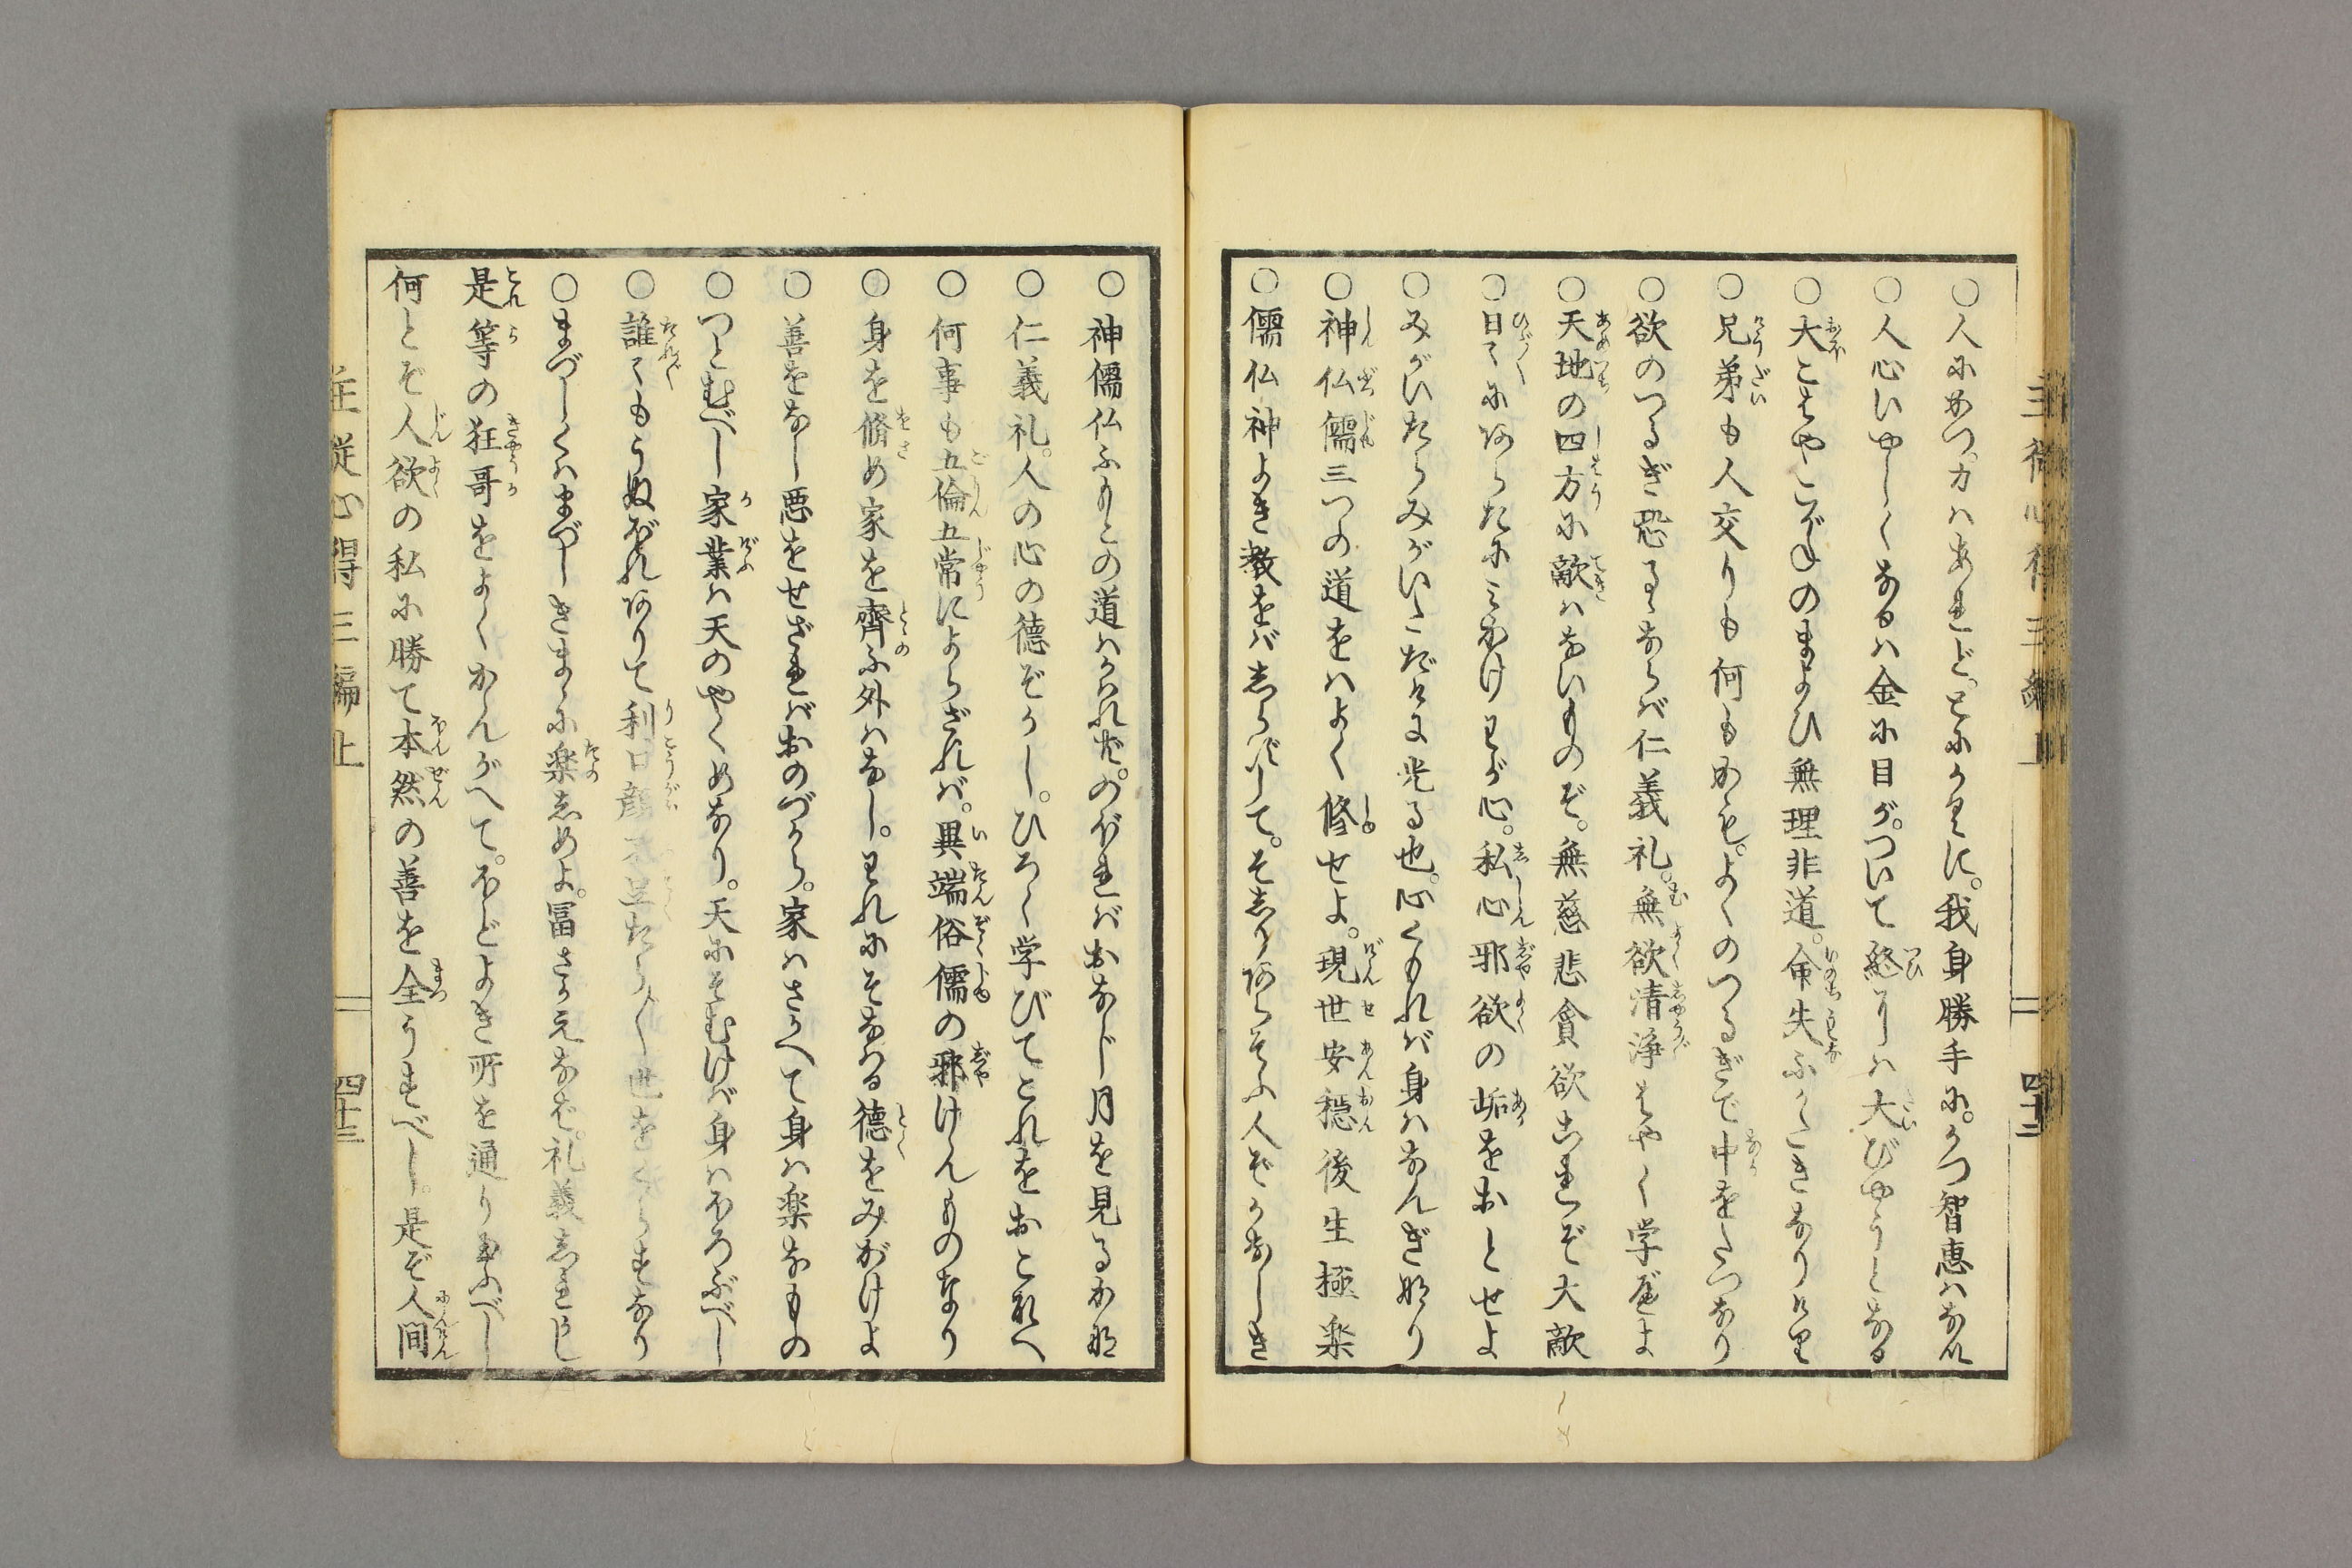 ○人にかつ力はあれど。とにかくに。我身勝手に。かつ智恵はなし
○人心いやしくなるは金に目が。ついて終りは大びやうとなる
○大こはやこがねのまよひ無理非道。命失ふかこきなりけり
○兄弟も人交りも何もかも。よくのつるぎで中をたつなり
○欲のつるぎ恐るゝならば仁義礼。無欲清浄はやく学べよ
○天地の四方に敵はないものぞ。無慈悲貪欲これぞ大敵
○日々にあらたにみがけわが心。私心邪欲の垢をおとせよ
○みがいたらみがいただけに光る也。心くもれば身はなんぎなり
○神仏儒三つの道をはよく修せよ。現世安穏後生極楽
○儒仏神よき教をばしらずして。そしりあらそふ人ぞかなしき
○神儒仏ふもとの道はかはれども。のぼればおなじ月を見るかな
○仁義礼。人の心の徳ぞかし。ひろく学びてこれをおこなへ
○何事も五倫五常によらざれば。異端俗儒の邪けんものなり
○身を脩め家を齊ふ外はなし。われにそなはる徳をみがけよ
○善をなし悪をせざればおのづから。家はさかへて身は楽なもの
○つとむべし家業は天のやくめなり。天にそむけば身はほろぶべし
○誰々もうぬぼれありて利口顔 たらく世をくらすなり
○まづしくはまづしきまゝに楽しめよ。冨さかえなば。礼義しるべし
是等の狂哥をよくかんがへて。ほどよき所を通り給ふべし
何とぞ人欲の私に勝て本然の善を全うすべし。是ぞ人間
主従心得三編上
四十二
主従心得三編上
四十三